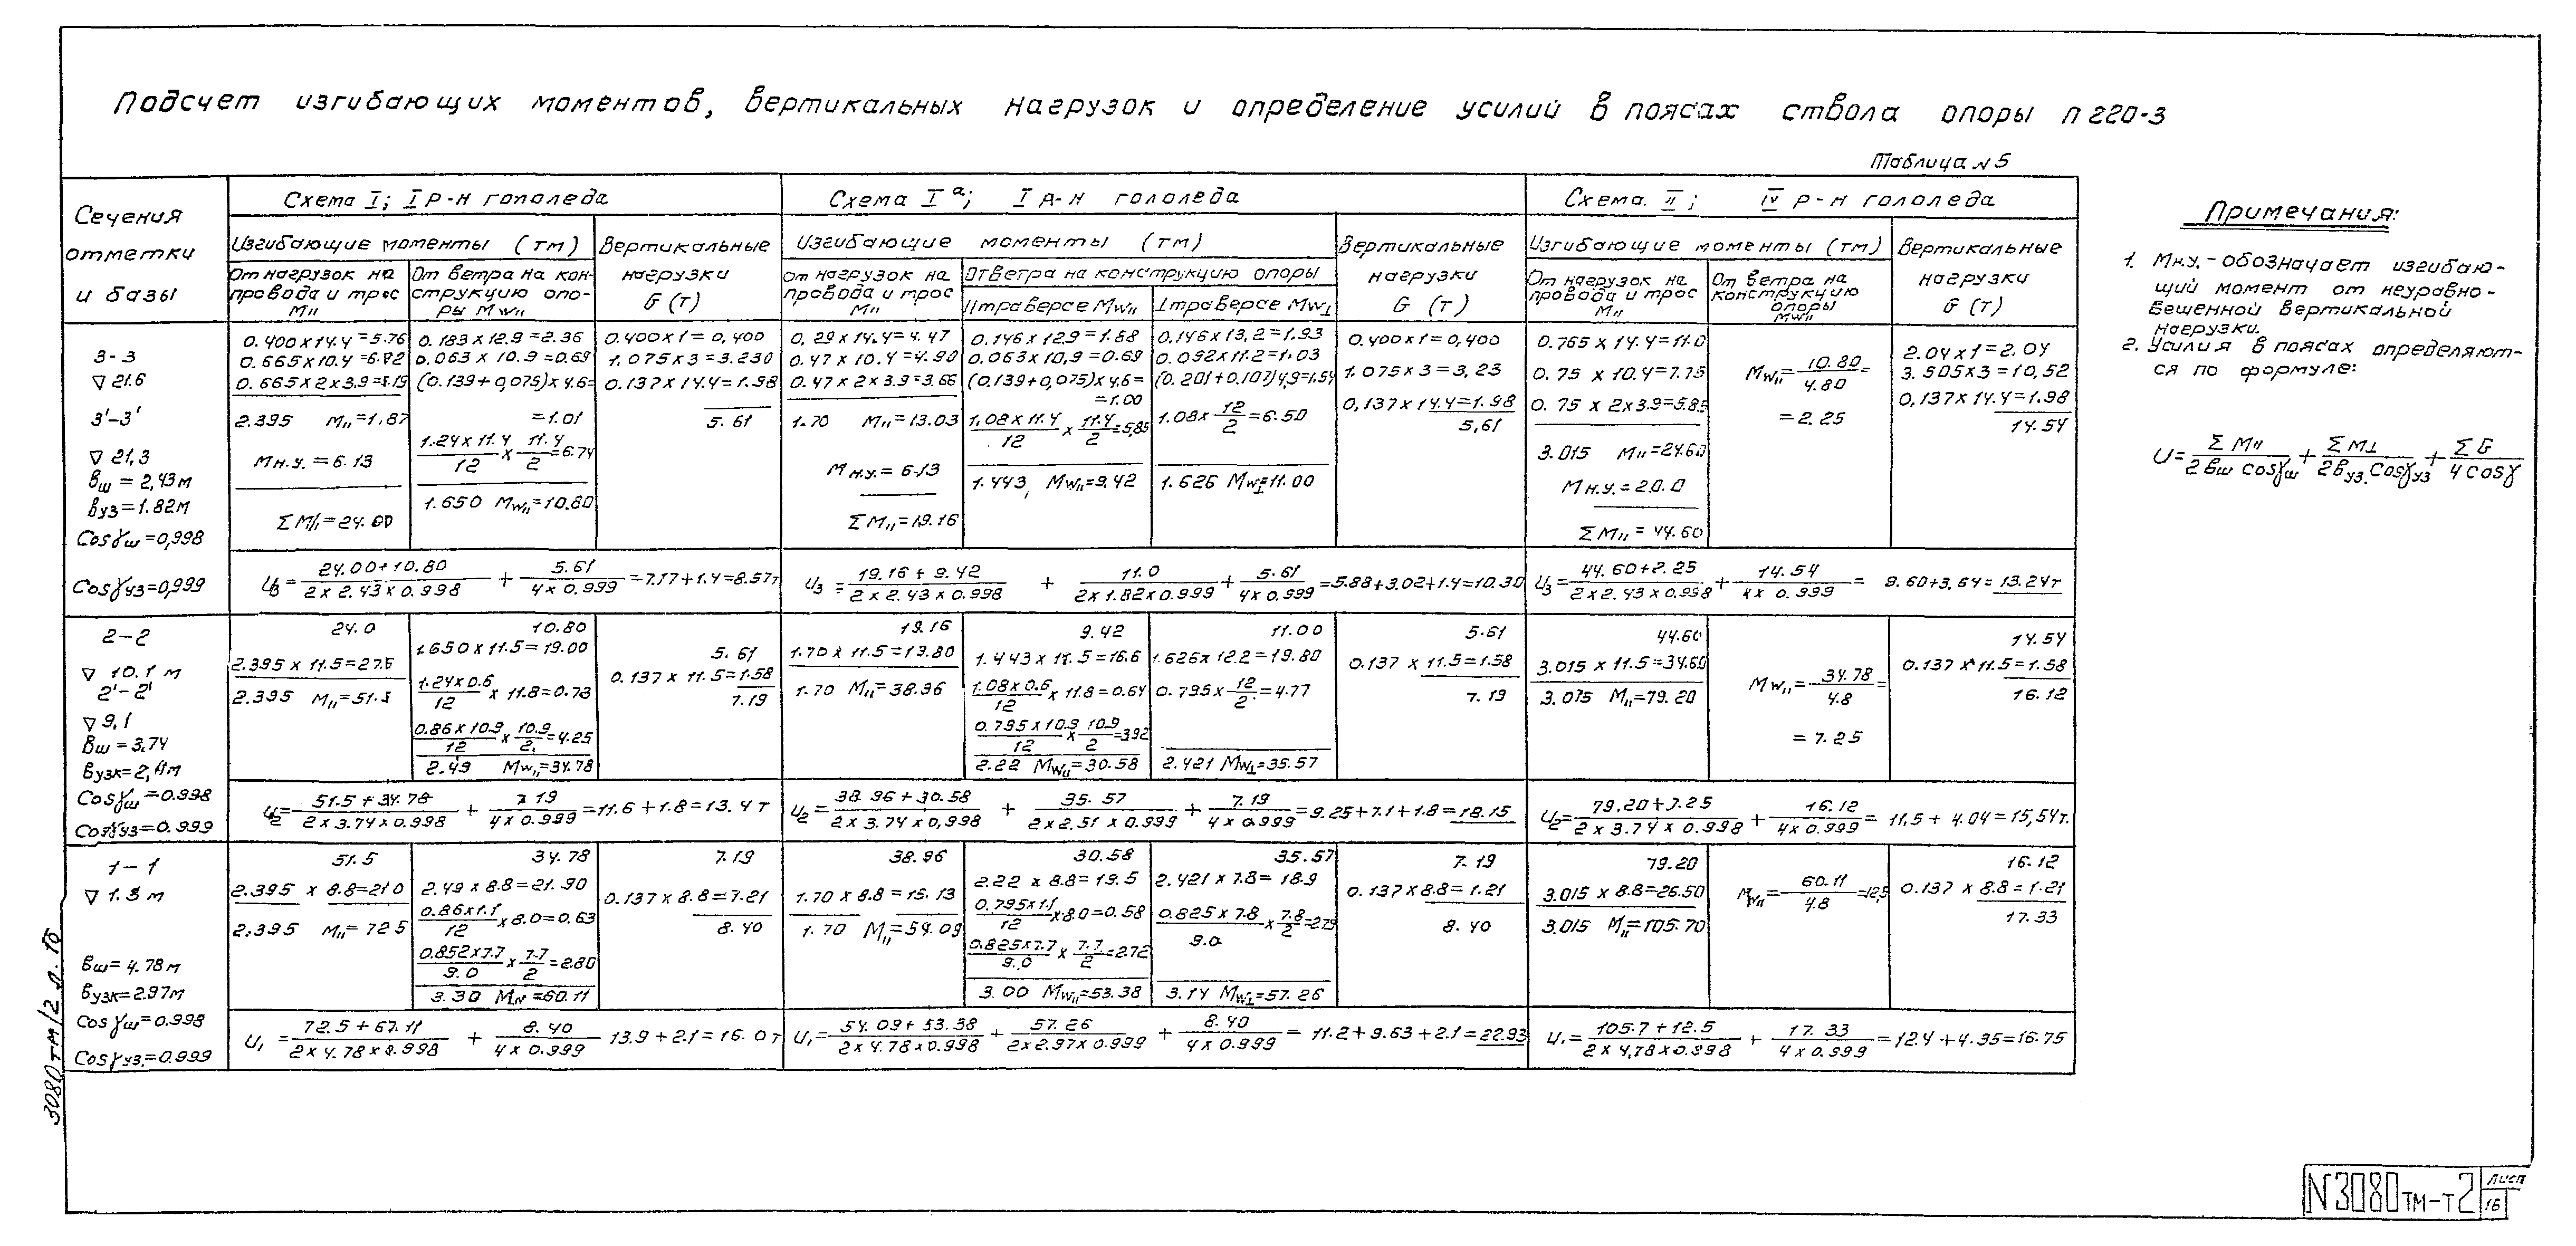 Подсчет изгибающих моментов, вертикальных нагрузок и определение усилий в поясах ствола опоры П220-3
Таблица №5
Сечения
отметки
и базы
Схема I; I р-н гололеда
Схема Iª; I р-н гололеда
Схема II; IV р-н гололеда
Изгибающие моменты (тм)
Вертикальные
нагрузки
G (т)
Изгибающие моменты (тм)
Вертикальные
нагрузки
G (т)
Изгибающие моменты (тм)
Вертикальные
нагрузки
G (т)
От нагрузок на
провода и трос
M∥
От ветра на кон-
струкцию опо-
ры Mw∥
От нагрузок на
провода и трос
M∥
От ветра на конструкцию опоры
∥ траверсе Mw∥
⊥ траверсе Mw⊥
От нагрузок на
провода и трос
M∥
От ветра на
конструкцию
опоры
Mw∥
3-3
▽ 21.6
3'-3'
▽ 21,3
вш = 2,43м
вуз = 1.82м
Cosγш = 0,998
Cosγуз = 0,999
0.400 х 14.4 = 5.76
0.665 х 10.4 = 6.92
0.665 х 2 х 3.9 = 5.19
2.395 M∥ = 1.87
Мн.у. = 6.13
ΣM∥ = 24.00
0.183 х 12.9 = 2.36
0.063 х 10.9 = 0.69
(0.139 + 0,075) х 4.6 =
= 1.01
1.24 х 11.4 / 12 х 11.4 / 2 = 6.74
1.650 Mw∥ = 10.80
0.400 х 1 = 0,400
1.075 х 3 = 3.230
0.137 х 14.4 = 1.98
5.61
0.29 х 14.4 = 4.47
0.47 х 10.4 = 4.90
0.47 х 2 х 3.9 = 3.66
1.70 M∥ = 13.03
Мн.у. = 6.13
ΣM∥ = 19.16
0.146 х 12.9 = 1.88
0.063 х 10,9 = 0.69
(0.139 + 0,075) х 4.6 =
= 1.00
1.08 х 11.4 / 12 х 11.4 / 2 = 5,85
1.443, Mw∥ = 9.42
0.146 х 13,2 = 1.93
0.092 х 11.2 = 1.03
(0.201 + 0.107) 4,9 = 1.54
1.08 х 12 / 2 = 6.50
1.626 Mw⊥ = 11.00
0.400 х 1 = 0,400
1.075 х 3 = 3,23
0,137 х 14.4 = 1.98
5,61
0.765 х 14.4 = 11.0
0.75 х 10.4 = 7.75
0.75 х 2 х 3.9 = 5.85
3.015 M∥ = 24.60
Мн.у. = 20.0
ΣM∥ = 44.60
Mw∥ = 10.80 / 4.80 =
= 2.25
2.04 х 1 = 2.04
3.505 х 3 = 10,52
0,137 х 14.4 = 1.98
14.54
U3 = 24.00 + 10.80 / 2 х 2.43 х 0.998 + 5.61 / 4 х 0.999 = 7.17 + 1.4 = 8.57т
U3 = 19.16 + 9.42 / 2 х 2.43 х 0.998 + 11.0 / 2 х 1.82 х 0.999 + 5.61 / 4 х 0.999 = 5.88 + 3.02 + 1.4 = 10.30
U3 = 44.60 + 2.25 / 2 х 2.43 х 0.998 + 14.54 / 4 х 0.999 = 9.60 + 3.64 = 13.24т
2-2
▽ 10.1 м
2'-2'
▽ 9,1
вш = 3.74
вузк = 2,
Cosγш = 0.998
Cosγуз = 0.999
24.0
2.395 х 11.5 = 27.5
2.395 M∥ = 51.5
10.80
1.650 х 11.5 = 19.00
1.24 х 0.6 / 12 х 11.8 = 0.73
0.86 х 10.9 / 12 х 10.9 / 2 = 4.25
2.49 Mw∥ = 34.78
5.61
0.137 х 11.5 = 1.58
7.19
19.16
1.70 х 11.5 = 19.80
1.70 M∥ = 38.96
9.42
1.443 х 11.5 = 16.6
1.08 х 0.6 / 12 х 11.8 = 0.64
0.795 х 10.9 / 12 х 10.9 / 2 = 3.92
2.22 Mw∥ = 30.58
11.00
1.626 х 12.2 = 19.80
0.795 х 12 / 2 = 4.77
2.421 Mw⊥ = 35.57
5.61
0.137 х 11.5 = 1.58
7.19
44.60
3.015 х 11.5 = 34.60
3.075 M∥ = 79.20
Mw∥ = 34.78 / 4.8 =
= 7.25
14.54
0.137 х 11.5 = 1.58
16.12
U2 = 51.5 + 34.78 / 2 х 3.74 х 0.998 + 7.19 / 4 х 0.999 = 11.6 + 1.8 = 13.4 т
U2 = 38.96 + 30.58 / 2 х 3.74 х 0,998 + 35.57 / 2 х 2.51 х 0.999 + 7.19 / 4 х 0.999 = 9.25 + 7.1 + 1.8 = 18.15
U2 = 79.20 + 7.25 / 2 х 3.74 х 0.998 + 16.12 / 4 х 0.999 = 11,5 + 4.04 = 15,54т.
1-1
▽ 1.3 м
вш = 4.78м
вузк = 2.97м
Cosγш = 0.998
Cosγуз. = 0.999
51.5
2.395 х 8.8 = 21.0
2.395 M∥ = 72.5
34.78
2.49 х 8.8 = 21.90
0.86 х 1.1 / 12 х 8.0 = 0.63
0.852 х 7.7 / 9.0 х 7.7 / 2 = 2.80
3.30 M∥ = 60.11
7.19
0.137 х 8.8 = 1.21
8.40
38.96
1.70 х 8.8 = 15.13
1.70 M∥ = 54.09
30.58
2.22 х 8.8 = 19.5
0.795 х 1.1 / 12 х 8.0 = 0.58
0.825 х 7.7 / 9.0 х 7.7 / 2 = 2.72
3.00 Mw∥ = 53.38
35.57
2.421 х 7.8 = 18.9
0.825 х 7.8 / 9.0 х 7.8 / 2 = 2.79
3.14 Mw⊥ = 57.26
7.19
0.137 х 8.8 = 1.21
8.40
79.20
3.015 х 8.8 = 26.50
3.015 M∥ = 105.70
Mw∥ = 60.11 / 4.8 = 12,5
16.12
0.137 х 8.8 = 1.21
17.33
U1 = 72.5 + 67.11 / 2 х 4.78 х 0.998 + 8.40 / 4 х 0.999 13.9 + 2.1 = 16.0 т
U1 = 54.09 + 53.38 / 2 х 4.78 х 0.998 + 57.26 / 2 х 2.97 х 0.999 + 8.40 / 4 х 0.999 = 11.2 + 9.63 + 2.1 = 22.93
U1 = 105.7 + 12.5 / 2 х 4,78 х 0.998 + 17.33 / 4 х 0.999 = 12.4 + 4.35 = 16.75
Примечания:
1. Мн.у. - обозначает изгибаю-
щий момент от неуравно-
вешенной вертикальной
нагрузки.
2. Усилия в поясах определяют-
ся по формуле:
U = ΣM∥ / 2вш cosγш + ΣM⊥ / 2вуз. Cosγуз + ΣG / 4 cosγ
3080тм/2 л. 16
N3080тм-т2
Лист
16